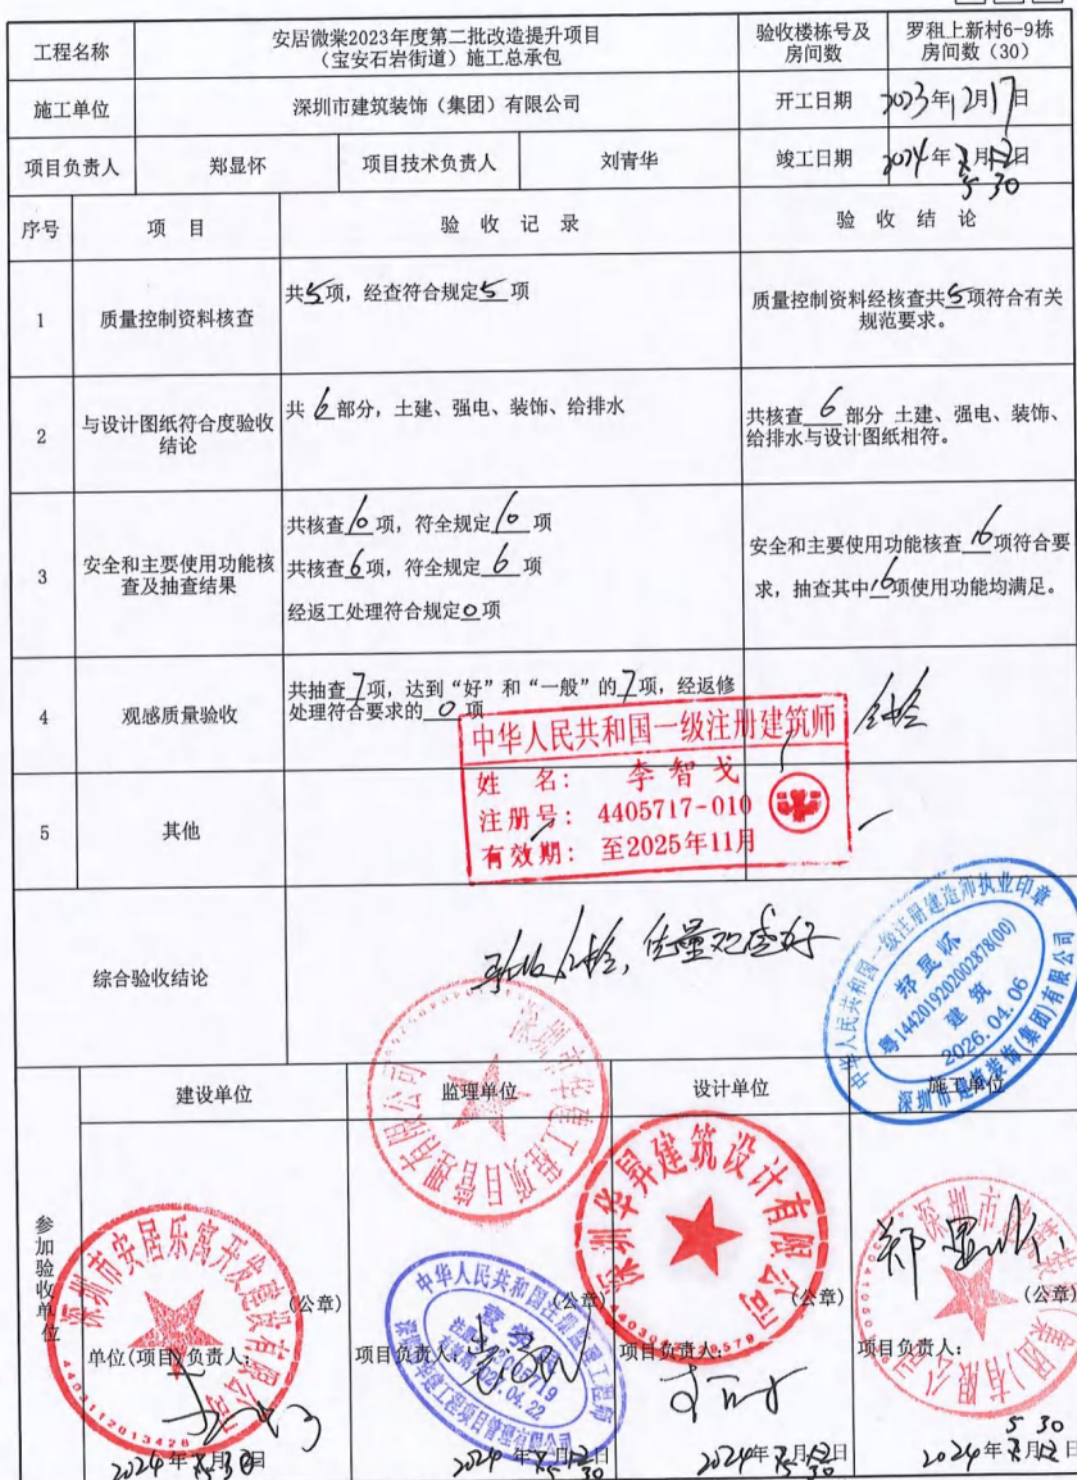 工程名称 安居微棠2023年度第二批改造提升项目
（宝安石岩街道）施工总承包 验收楼栋号及
房间数 罗租上新村6-9栋
房间数（30）
施工单位 深圳市建筑装饰（集团）有限公司 开工日期 2023年12月17日
项目负责人 郑显怀 项目技术负责人 刘青华 竣工日期 2024年月日
5 30
序号 项 目 验 收 记 录 验 收 结 论
1 质量控制资料核查 共5项，经查符合规定5项 质量控制资料经核查共5项符合有关
规范要求。
2 与设计图纸符合度验收
结论 共6部分，土建、强电、装饰、给排水 共核查6部分 土建、强电、装饰、
给排水与设计图纸相符。
3 安全和主要使用功能核
查及抽查结果 共核查10项，符全规定10项
共核查6项，符全规定6项
经返工处理符合规定0项
安全和主要使用功能核查16项符合要
求，抽查其中16项使用功能均满足。
4 观感质量验收 共抽查7项，达到“好”和“一般”的7项，经返修
处理符合要求的0项
合格
中华人民共和国一级注册建筑师
姓 名： 李智戈
注册号： 4405717-010
有效期： 至2025年11月
5 其他
综合验收结论 验收合格，质量观感好
中华人民共和国一级注册建造师执业印章
郑显怀
粤1442019202002878(00)
建筑
2026.04.06
深圳市建筑装饰(集团)有限公司
参加验收单位
建设单位 监理单位 设计单位 施工单位
深圳市华建工程项目管理有限公司
深圳市安居乐寓开发建设有限公司
4403112013428
中华人民共和国注册监理工程师
04.22
深圳市华建工程项目管理有限公司
深圳华昇建筑设计有限公司
郑显怀
(公章) (公章) (公章) (公章)
单位(项目)负责人： 项目负责人： 项目负责人： 项目负责人：
2024年5月30日 2024年月日 2024年月日 2024年月日
5 30 5 30 5 30